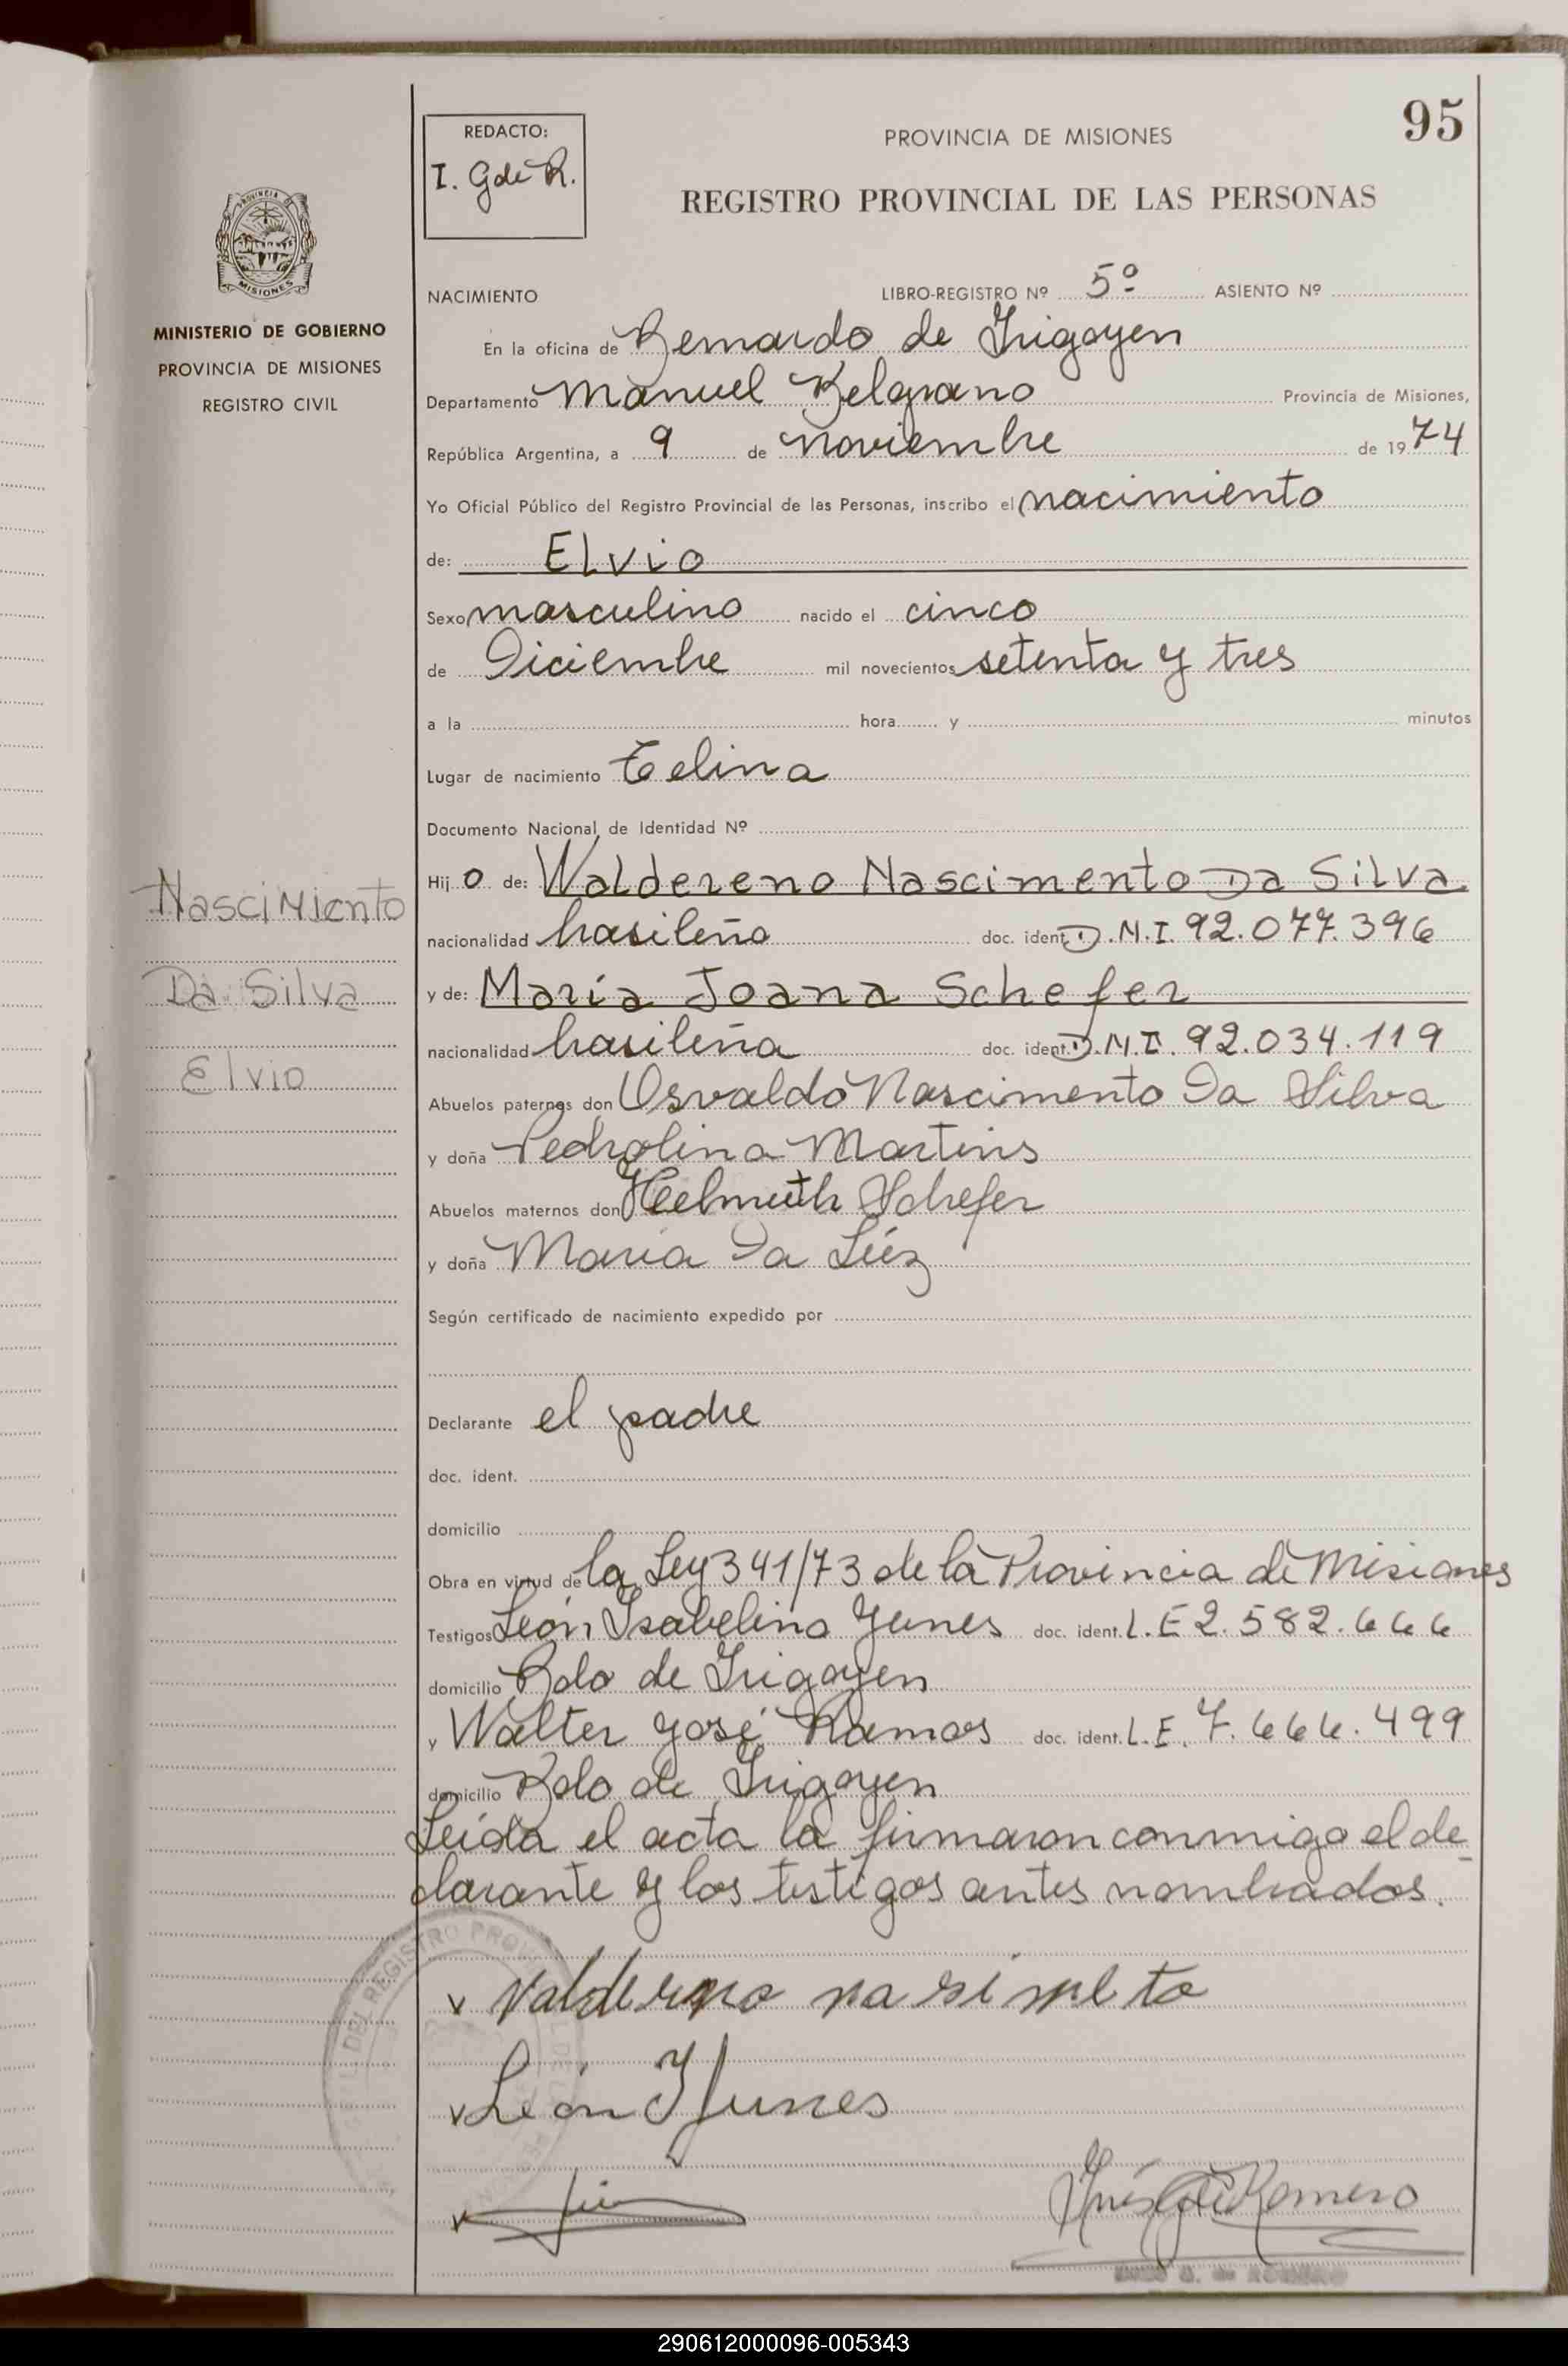 95
REDACTO:
I. G de R.
PROVINCIA DE MISIONES
REGISTRO PROVINCIAL DE LAS PERSONAS
PROVINCIA DE
MISIONES
MINISTERIO DE GOBIERNO
PROVINCIA DE MISIONES
REGISTRO CIVIL
NACIMIENTO LIBRO-REGISTRO Nº 5º ASIENTO Nº
En la oficina de Bernardo de Irigoyen
Departamento Manuel Belgrano Provincia de Misiones,
República Argentina, a 9 de noviembre de 1974
Yo Oficial Público del Registro Provincial de las Personas, inscribo el nacimiento
de: Elvio
Sexo masculino nacido el cinco
de Diciembre mil novecientos setenta y tres
a la hora y minutos
Lugar de nacimiento
Documento Nacional de Identidad Nº
Hijo de: Waldereno Nascimento Da Silva
nacionalidad brasileño doc. ident. D.N.I. 92.077.396
y de: María Joana Schefer
nacionalidad brasileña doc. ident. D.N.I. 92.034.119
Nascimiento
Da Silva
Elvio
Abuelos paternos don Osvaldo Nascimento Da Silva
y doña Pedrolina Martins
Abuelos maternos don Helmuth Schefer
y doña Maria Da Lúz
Según certificado de nacimiento expedido por
Declarante el padre
doc. ident.
domicilio
Obra en virtud de la Ley 341/73 de la Provincia de Misiones
Testigos León Isabelino Yunes doc. ident. L.E 2.582.666
domicilio Bdo de Irigoyen
y Walter José Ramos doc. ident. L.E. 7.666.499
domicilio Bdo de Irigoyen
Leída el acta la firmaron conmigo el de-
clarante y los testigos antes nombrados.
DEL REGISTRO PROV
v Valdereno nasimeto
v León I Yunes
v
Inés G de Romero
290612000096-005343